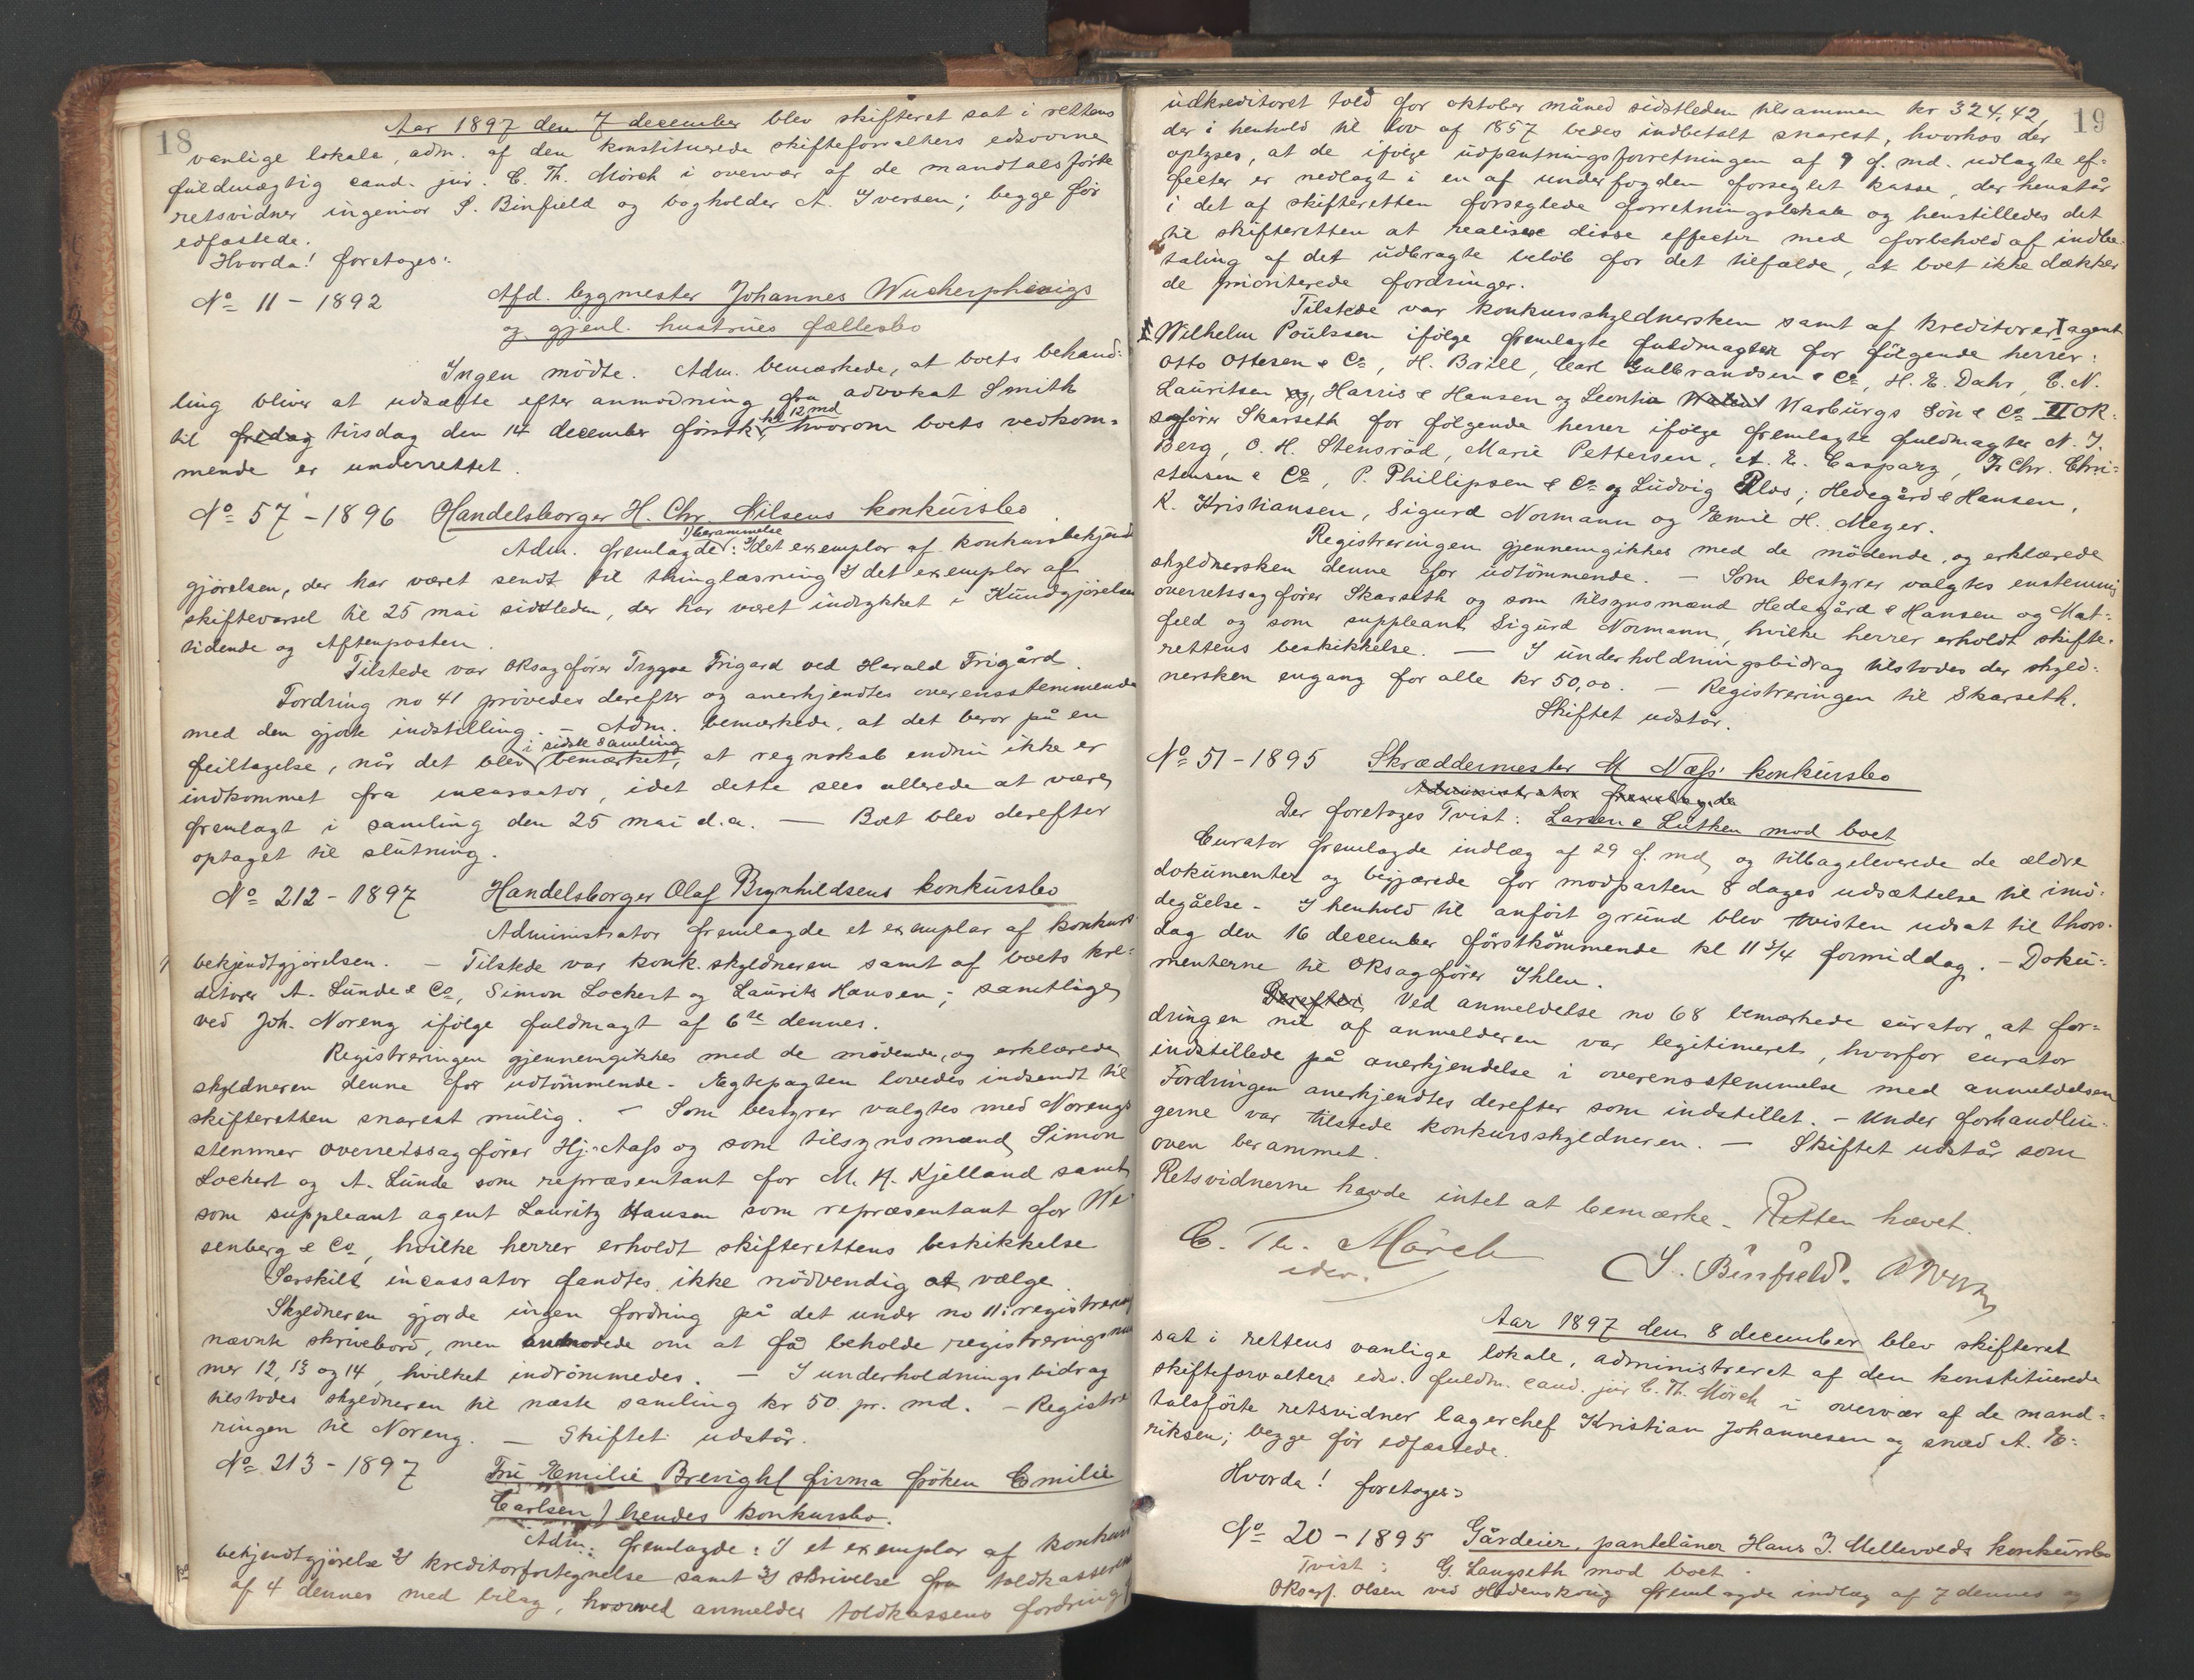 18
Aar 1897 den 7 december blev skifteret sat i rettens
vanlige lokale, adm. af den konstituerede skifteforvalters edsvorne
fuldmægtig cand. jur. C. Th. Mörch i overvær af de mandtalsförte
retsvidner ingeniör S. Binfield og bogholder A. Iversen; begge för
edfæstede.
Hvorda! foretoges:
No 11 - 1892 Afd. bygmester Johannes Wucherphenigs
og gjenl. hustrues fællesbo
Ingen mödte. Adm. bemærkede, at boets behand-
ling bliver at udsætte efter anmodning fra advokat Smith
til fredag tirsdag den 14 december förstk. kl 12 md hvorom boets vedkom-
mende er underrettet.
No 57 - 1896 Handelsborger H. Chr. Nilsens konkursbo
Adm. fremlagde: 1) berammelse 2) det exemplar af konkursbekjendt
gjörelsen, der har været sendt til thinglæsning 3) det exemplar af
skiftevarsel til 25 mai sidstleden, der har været indrykket i Kundgjörelses
tidende og Aftenposten.
Tilstede var Oksagförer Trygve Frigard ved Harald Frigård.
Fordring no 41 prövedes derefter og anerkjendtes overensstemmende
med den gjorte indstilling. - Adm. bemærkede, at det beror på en
feiltagelse, når det blev i sidste samling bemærket, at regnskab endnu ikke er
indkommet fra incassator, idet dette sees allerede at være
fremlagt i samling den 25 mai d.a. — Boet blev derefter
optaget til slutning.
No 212 - 1897 Handelsborger Olaf Brynhildsens konkursbo
Administrator fremlagde et exemplar af konkurs
bekjendtgjörelsen. - Tilstede var konk.skyldneren samt af boets kre-
ditorer A. Lunde & Co, Simon Lockert og Laurits Hansen; samtlige
ved Joh. Noreng ifölge fuldmagt af 6te dennes.
Registreringen gjennemgikkes med de mödende, og erklærede
skyldneren denne for udtömmende. - Ægtepagten lovedes indsendt til
skifteretten snarest mulig. - Som bestyrer valgtes med Norengs
stemmer overretssagförer Hj. Aass og som tilsynsmænd Simon
Lockert og A. Lunde som repræsentant for M. H. Kjelland samt
som suppleant agent Lauritz Hansen som repræsentant for We
senberg & Co, hvilke herrer erholdt skifterettens beskikkelse
Særskilt incassator fandtes ikke nödvendig at vælge.
Skyldneren gjorde ingen fordring på det under no 11 i registreringen
nævnte skrivebord, men anmodede om at få beholde registreringsnum
mer 12, 13 og 14, hvilket indrömmedes. — I underholdningsbidrag
tilstodes skyldneren til næste samling kr 50 pr. md. - Registre
ringen til Noreng. — Skiftet udstår.
No 213 - 1897 Fru Emilie Brevigh (firma fröken Emilie
Carlsen) hendes konkursbo.
Adm. fremlagde: 1) et exemplar af konkurs
bekjendtgjörelse 2) kreditorfortegnelse samt 3) skrivelse fra toldkassereren
af 4 dennes med bilag, hvorved anmeldes toldkassens fordring
19
udkreditoret told for oktober måned sidstleden tilsammen kr 324,42,
der i henhold til lov af 1857 bedes indbetalt snarest, hvorhos der
oplyses, at de ifölge udpantningsforretningen af 9 f. md. udlagte ef-
fecter er nedlagt i en af underfogden forseglet kasse, der henstår
i det af skifteretten forseglede forretningslokale og henstilledes det
til skifteretten at realisere disse effecter med forbehold af indbe-
taling af det udbragte belöb for det tilfælde, at boet ikke dækker
de prioriterede fordringer.
Tilstede var konkursskyldnersken samt af kreditorer I agent
Wilhelm Poulssen ifölge fremlagte fuldmagter for fölgende herrer:
Otto Ottesen & Co, H. Brill, Carl Gulbrandsen & Co, H. E. Dahr, C. N.
Lauritsen og, Harris & Hansen og Leontin Warburgs Sön & Co II OR-
sagförer Skarseth for fölgende herrer ifölge fremlagte fuldmagter N. J.
Berg, O. H. Stensröd, Marie Pettersen, A. E. Caspary, Fr Chr. Chri-
stensen & Co, P. Phillipsen & Co og Ludvig Plos; Hedegård & Hansen,
K. Kristiansen, Sigurd Normann og Emil H. Meyer.
Registreringen gjennemgikkes med de mödende, og erklærede
skyldnersken denne for udtömmende. - Som bestyrer valgtes enstemmig
overretssagförer Skarseth og som tilsynsmænd Hedegård & Hansen og Hat-
feld og som suppleant Sigurd Normann, hvilke herrer erholdt skifte-
rettens beskikkelse. — I underholdningsbidrag tilstodes der skyld-
nersken engang for alle kr 50,00. - Registreringen til Skarseth.
Skiftet udstår.
No 51 - 1895 Skræddermester M Næss' konkursbo
Administrator fremlagde
Der foretoges Tvist: Larsen & Lutken mod boet
Curator fremlagde indlæg af 29 f. md, og tilbageleverede de ældre
dokumenter og begjærede for modparten 8 dages udsættelse til imö-
degåelse. I henhold til anfört grund blev tvisten udsat til thors-
dag den 16 december förstkommende kl 11 3/4 formiddag. - Doku-
menterne til OKsagförer Ihlen.
Derefter Ved anmeldelse no 68 bemærkede curator, at for-
dringen nu af anmelderen var legitimeret, hvorfor curator
indstillede på anerkjendelse i overensstemmelse med anmeldelsen
Fordringen anerkjendtes derefter som indstillet. - Under forhandlin-
gerne var tilstede konkursskyldneren. — Skiftet udstår som
oven berammet.
Retsvidnerne havde intet at bemærke. Retten hævet.
C. Th. Mörch
edsv.
S. Binfield. A Iversen
Aar 1897 den 8 december blev skifteret
sat i rettens vanlige lokale, administreret af den konstituerede
skifteforvalters edsv. fuldm. cand. jur C. Th. Mörch i overvær af de mand-
talsförte retsvidner lagerchef Kristian Johannesen og snæd A. E-
riksen; begge för edfæstede.
Hvorda! foretoges:
No 20 - 1895 Gårdeier, pantelåner Hans J. Mellevolds konkursbo
Tvist: G. Langseth mod boet.
OKsagf. Olsen ved Hedenskoug fremlagde indlæg af 7 dennes og